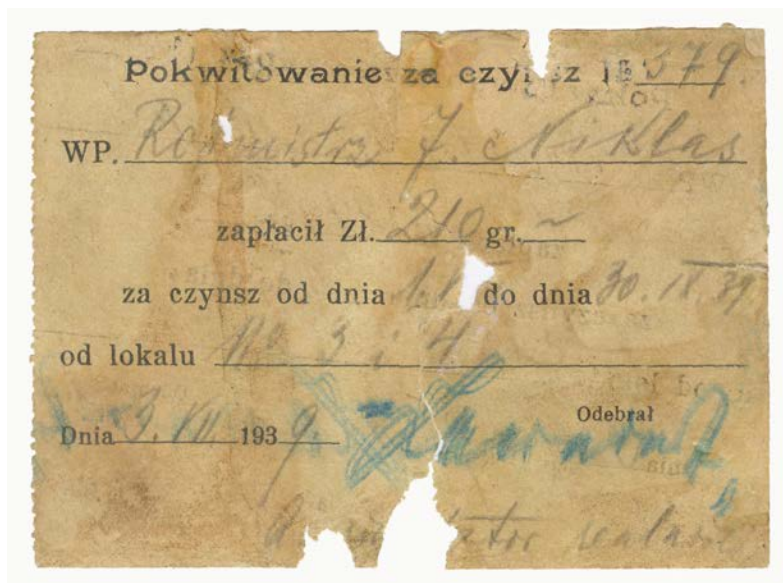 Pokwitowanie za czynsz № 579.
WP. Rotmistrz J. Niklas
zapłacił Zł. 210 gr. ~
za czynsz od dnia do dnia 30. IX. 39
od lokalu No 3 i 4
Odebrał
Dnia 3. VII 1939.